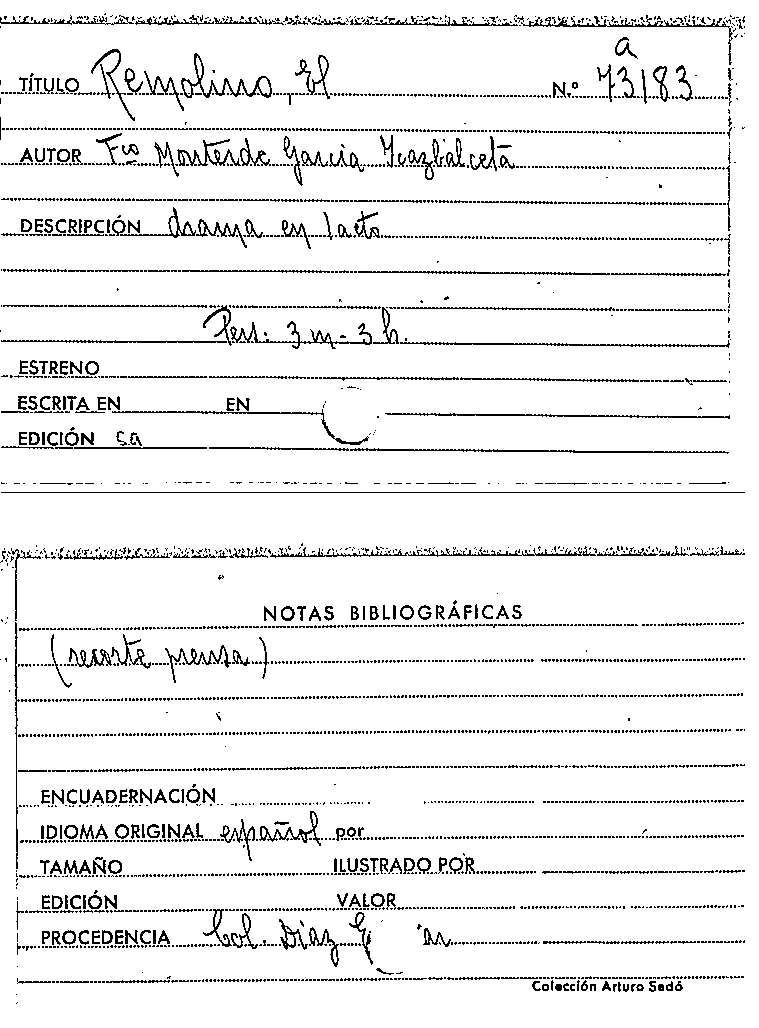 a
TÍTULO Remolino, El N.º 73183
AUTOR Fco Monterde García Icazbalceta
DESCRIPCIÓN drama en 1 acto
Pers: 3 m - 3 h.
ESTRENO
ESCRITA EN EN
EDICIÓN sa
NOTAS BIBLIOGRÁFICAS
(recorte prensa)
ENCUADERNACIÓN
IDIOMA ORIGINAL español por
TAMAÑO ILUSTRADO POR
EDICIÓN VALOR
PROCEDENCIA Col. Díaz
Colección Arturo Sedó